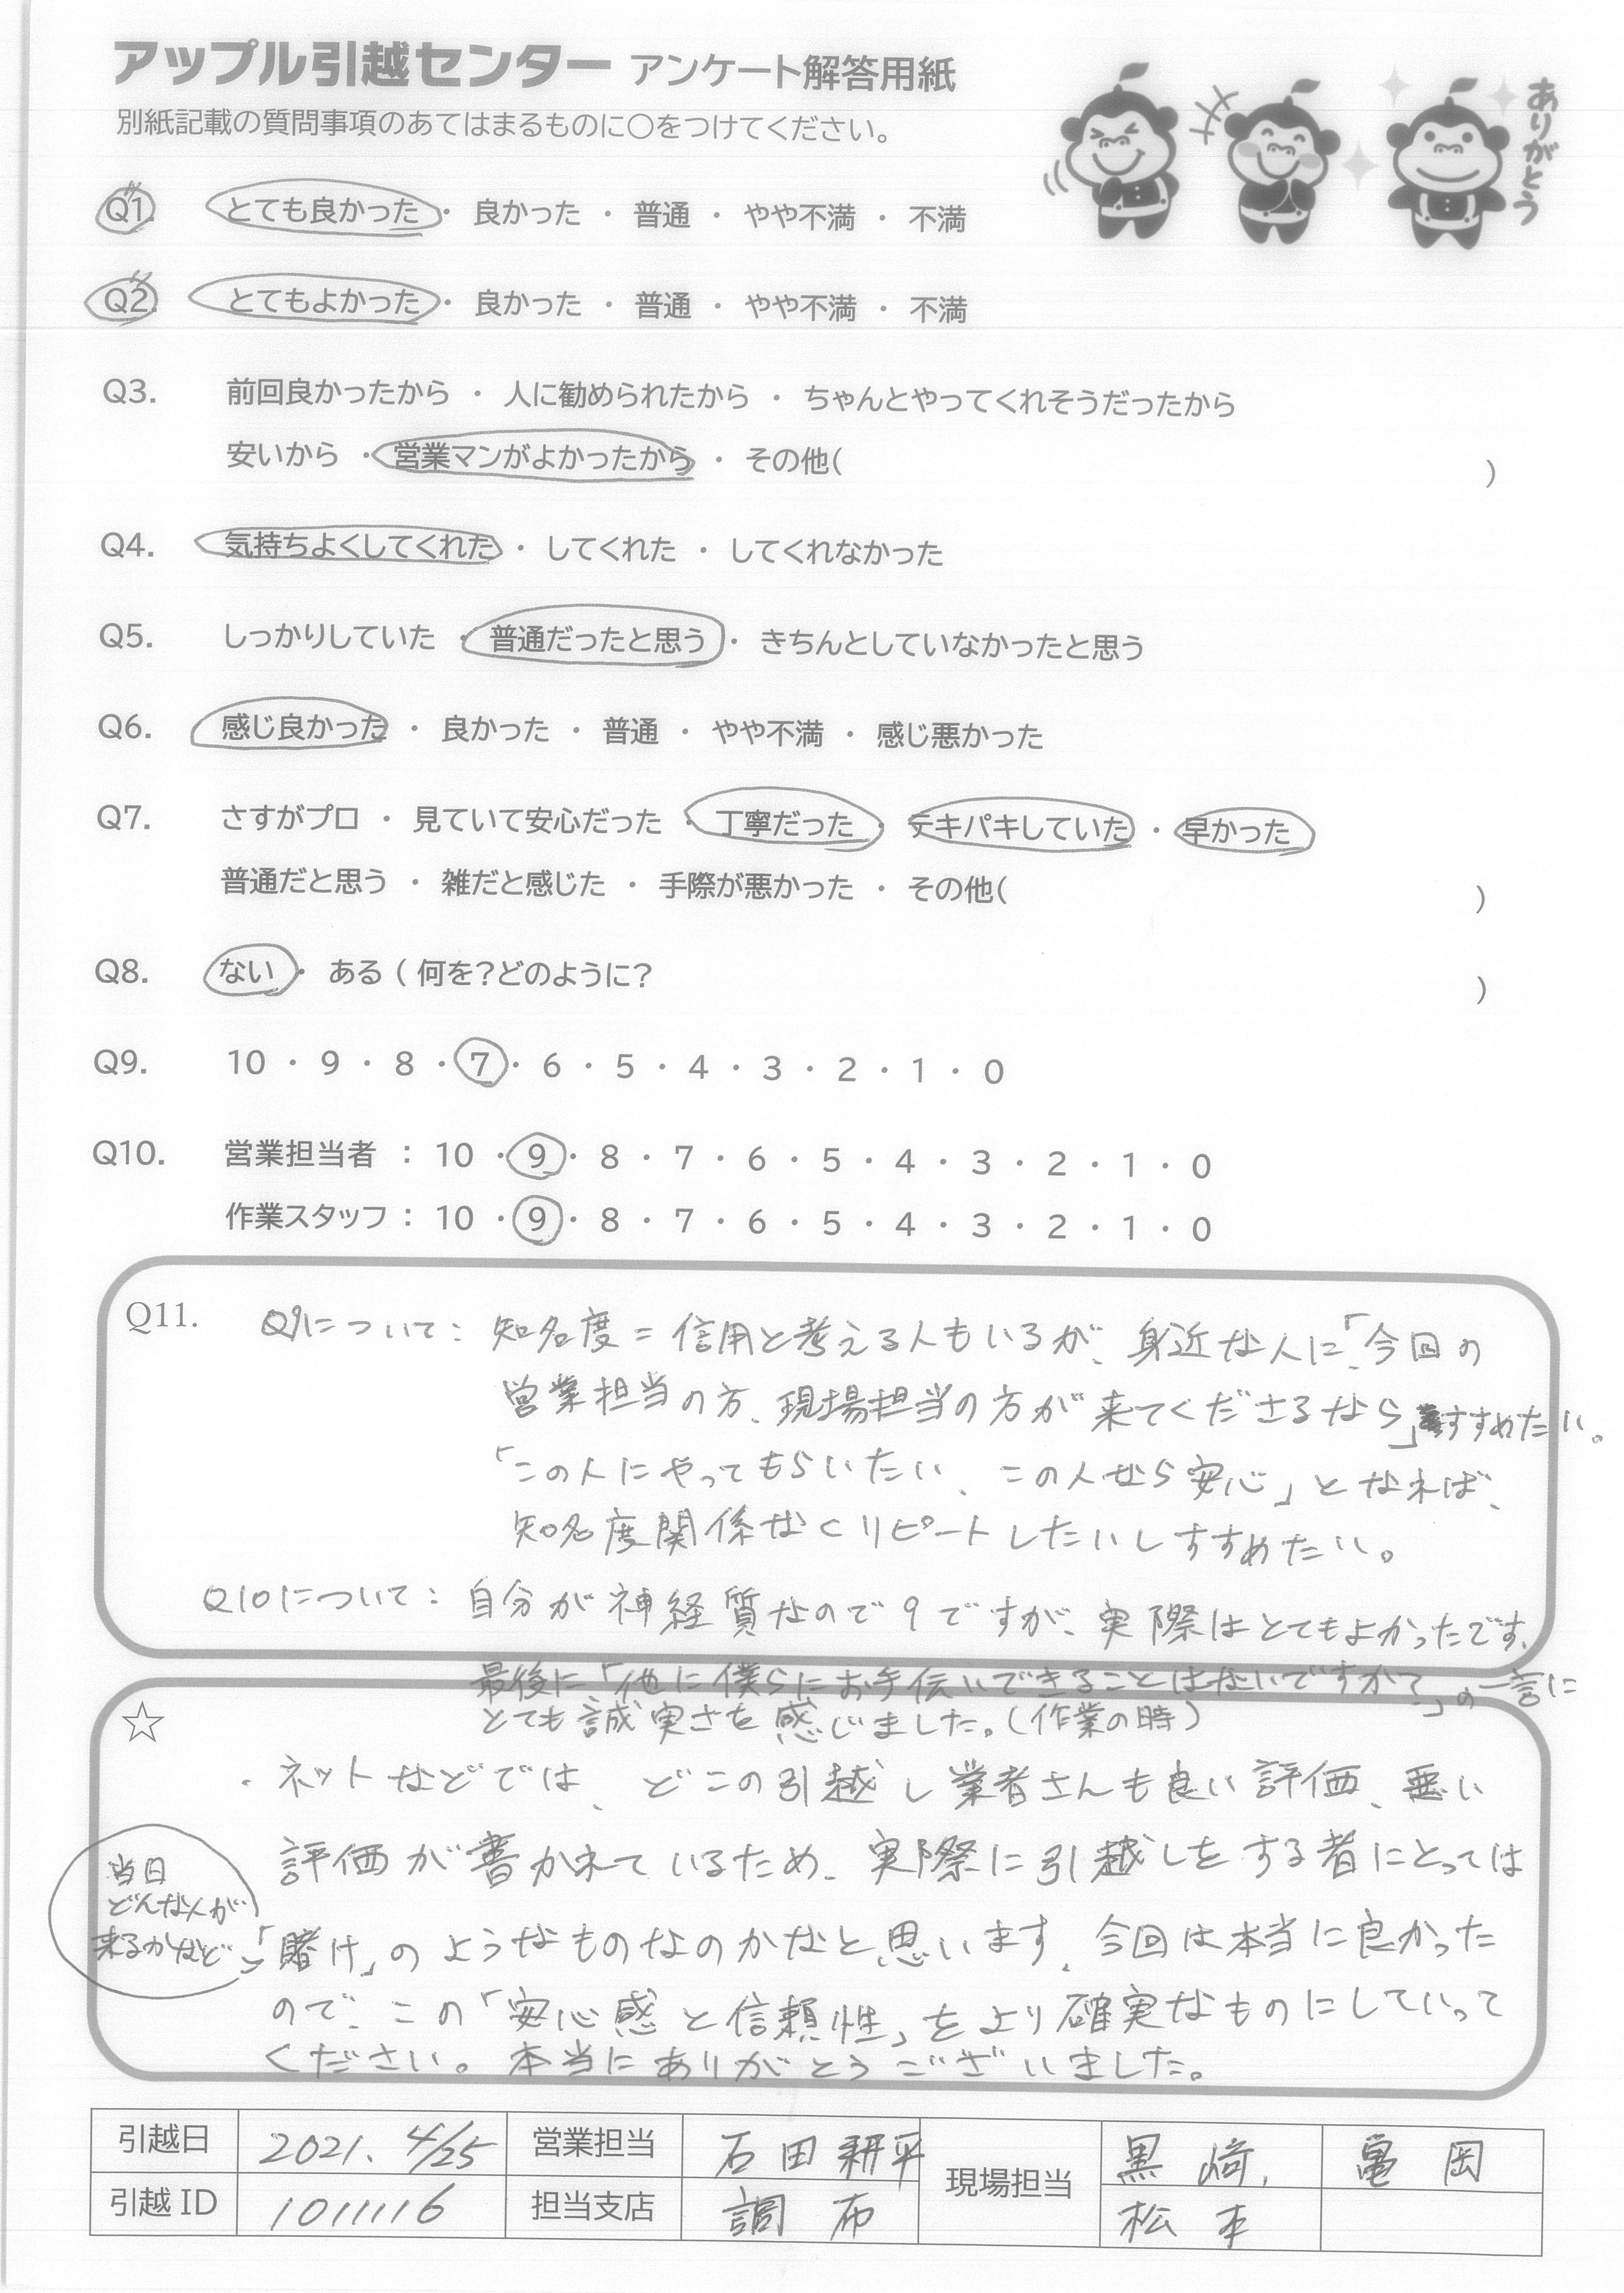 アップル引越センター アンケート解答用紙
別紙記載の質問事項のあてはまるものに○をつけてください。
ありがとう
Q1. とても良かった ・ 良かった ・ 普通 ・ やや不満 ・ 不満
Q2. とてもよかった ・ 良かった ・ 普通 ・ やや不満 ・ 不満
Q3. 前回良かったから ・ 人に勧められたから ・ ちゃんとやってくれそうだったから
安いから ・ 営業マンがよかったから ・ その他( )
Q4. 気持ちよくしてくれた ・ してくれた ・ してくれなかった
Q5. しっかりしていた ・ 普通だったと思う ・ きちんとしていなかったと思う
Q6. 感じ良かった ・ 良かった ・ 普通 ・ やや不満 ・ 感じ悪かった
Q7. さすがプロ ・ 見ていて安心だった ・ 丁寧だった ・ テキパキしていた ・ 早かった
普通だと思う ・ 雑だと感じた ・ 手際が悪かった ・ その他( )
Q8. ない ・ ある ( 何を?どのように? )
Q9. 10 ・ 9 ・ 8 ・ 7 ・ 6 ・ 5 ・ 4 ・ 3 ・ 2 ・ 1 ・ 0
Q10. 営業担当者 : 10 ・ 9 ・ 8 ・ 7 ・ 6 ・ 5 ・ 4 ・ 3 ・ 2 ・ 1 ・ 0
作業スタッフ : 10 ・ 9 ・ 8 ・ 7 ・ 6 ・ 5 ・ 4 ・ 3 ・ 2 ・ 1 ・ 0
Q11. Q9について: 知名度=信用と考える人もいるが、身近な人に、「今回の
営業担当の方、現場担当の方が来てくださるなら」すすめたい。
「この人にやってもらいたい、この人なら安心」となれば、
知名度関係なくリピートしたいしすすめたい。
Q10について: 自分が神経質なので9ですが、実際はとてもよかったです。
最後に「他に僕らにお手伝いできることはないですか?」の一言に
とても誠実さを感じました。(作業の時)
☆
・ネットなどでは、どこの引越し業者さんも良い評価、悪い
評価が書かれているため、実際に引越しをする者にとっては
当日
どんな人が
来るかなど
「賭け」のようなものなのかなと思います。今回は本当に良かった
ので、この「安心感と信頼性」をより確実なものにしていって
ください。本当にありがとうございました。
引越日 2021. 4/25 営業担当 石田耕平 現場担当 黒崎, 亀岡
引越ID 1011116 担当支店 調布 松本